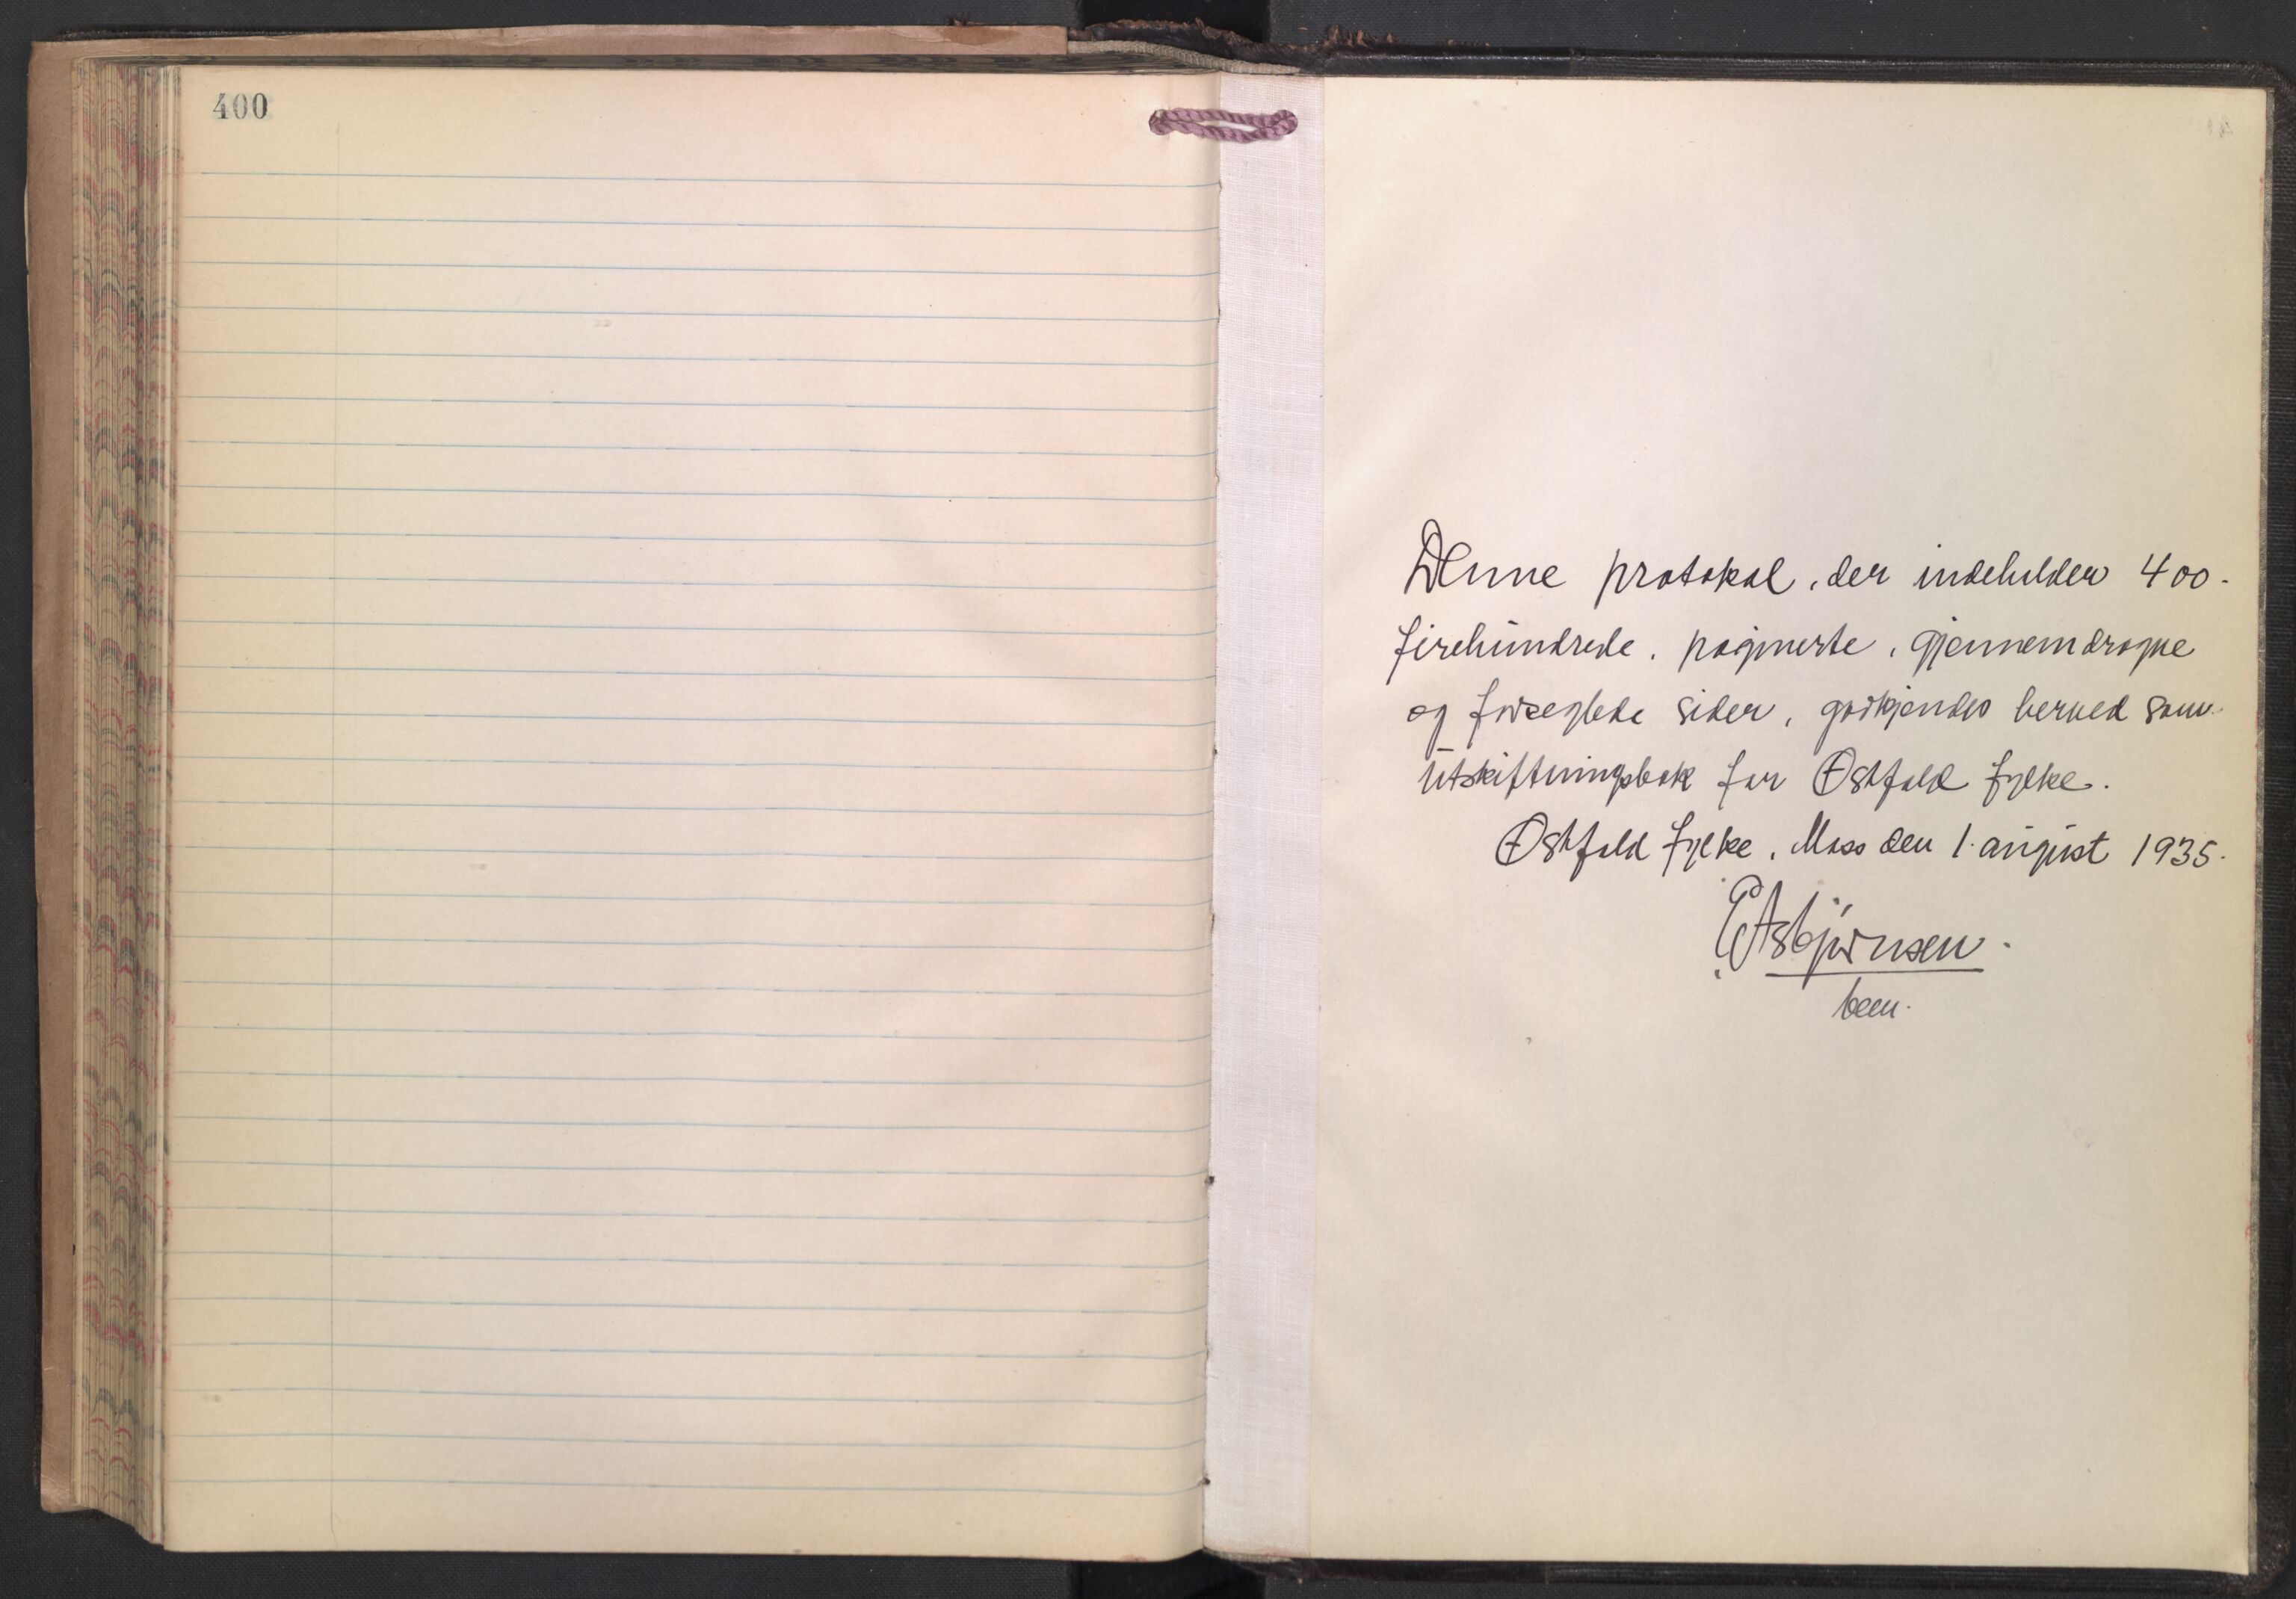 400
Denne protokol, der indeholder 400-
firehundrede, paginerte, gjennemdragne
og forseglede sider, godkjendes herved som
utskiftningsbok for Østfold fylke.
Østfold fylke, Moss den 1. august 1935.
E Asbjørnsen.
bem.